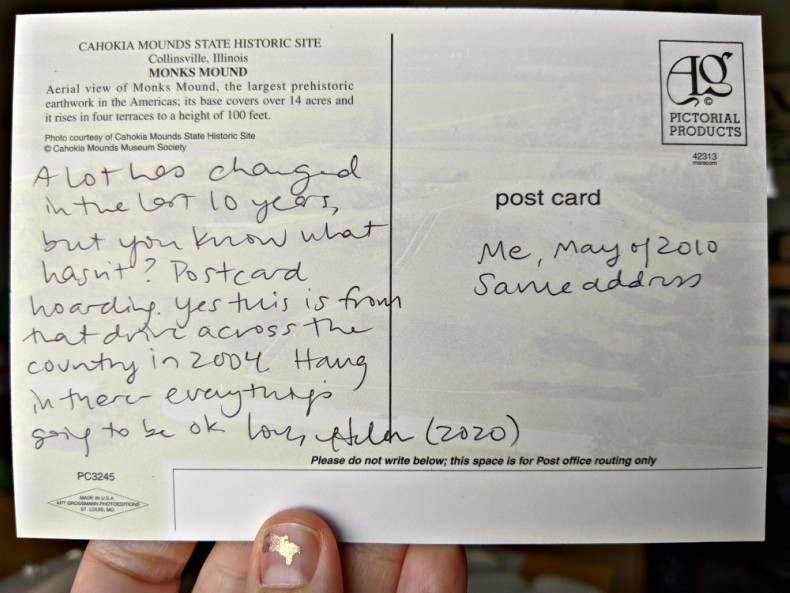 CAHOKIA MOUNDS STATE HISTORIC SITE
Collinsville, Illinois
MONKS MOUND
Aerial view of Monks Mound, the largest prehistoric
earthwork in the Americas; its base covers over 14 acres and
it rises in four terraces to a height of 100 feet.
Photo courtesy of Cahokia Mounds State Historic Site
© Cahokia Mounds Museum Society
A lot has changed
in the last 10 years,
but you know what
hasn't? Postcard
hoarding. Yes this is from
that drive across the
country in 2004. Hang
in there everything's
going to be ok Love, (2020)
PC3245
MADE IN U.S.A.
ART GROSSMANN PHOTOEDITIONS
ST. LOUIS, MO.
AG
©
PICTORIAL
PRODUCTS
42313
post card
Me, May of 2010
Same address
Please do not write below; this space is for Post office routing only